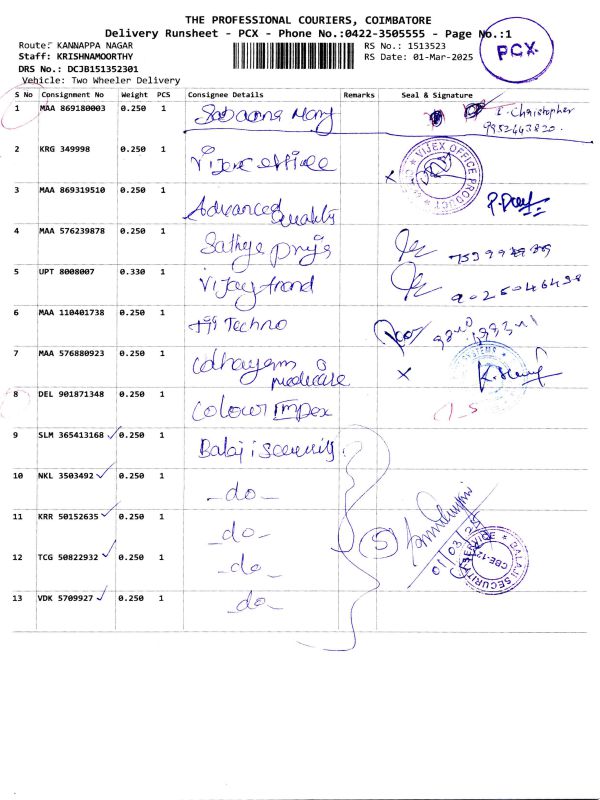 THE PROFESSIONAL COURIERS, COIMBATORE
Delivery Runsheet - PCX - Phone No.:0422-3505555 - Page No.:1
PCX
Route: KANNAPPA NAGAR
Staff: KRISHNAMOORTHY
DRS No.: DCJB151352301
Vehicle: Two Wheeler Delivery
RS No.: 1513523
RS Date: 01-Mar-2025
S No Consignment No Weight PCS Consignee Details Remarks Seal & Signature
1 MAA 869180003 0.250 1 L. Christopher
9952443820.
2 KRG 349998 0.250 1 Vijex office
VIJEX OFFICE PRODUCT
3 MAA 869319510 0.250 1 Advanced Quality
4 MAA 576239878 0.250 1 Sathya
5 UPT 8008007 0.330 1 Vijay trand
9025046438
6 MAA 110401738 0.250 1 Techno
7 MAA 576880923 0.250 1 X
8 DEL 901871348 0.250 1 Colour Impex
9 SLM 365413168 0.250 1 Balaji security
10 NKL 3503492 0.250 1 -do-
11 KRR 50152635 0.250 1 -do-
12 TCG 50822932 0.250 1 -do-
13 VDK 5709927 0.250 1 -do-
5
01/03/25
BALAJI SECURITY SERVICE
CBE-12